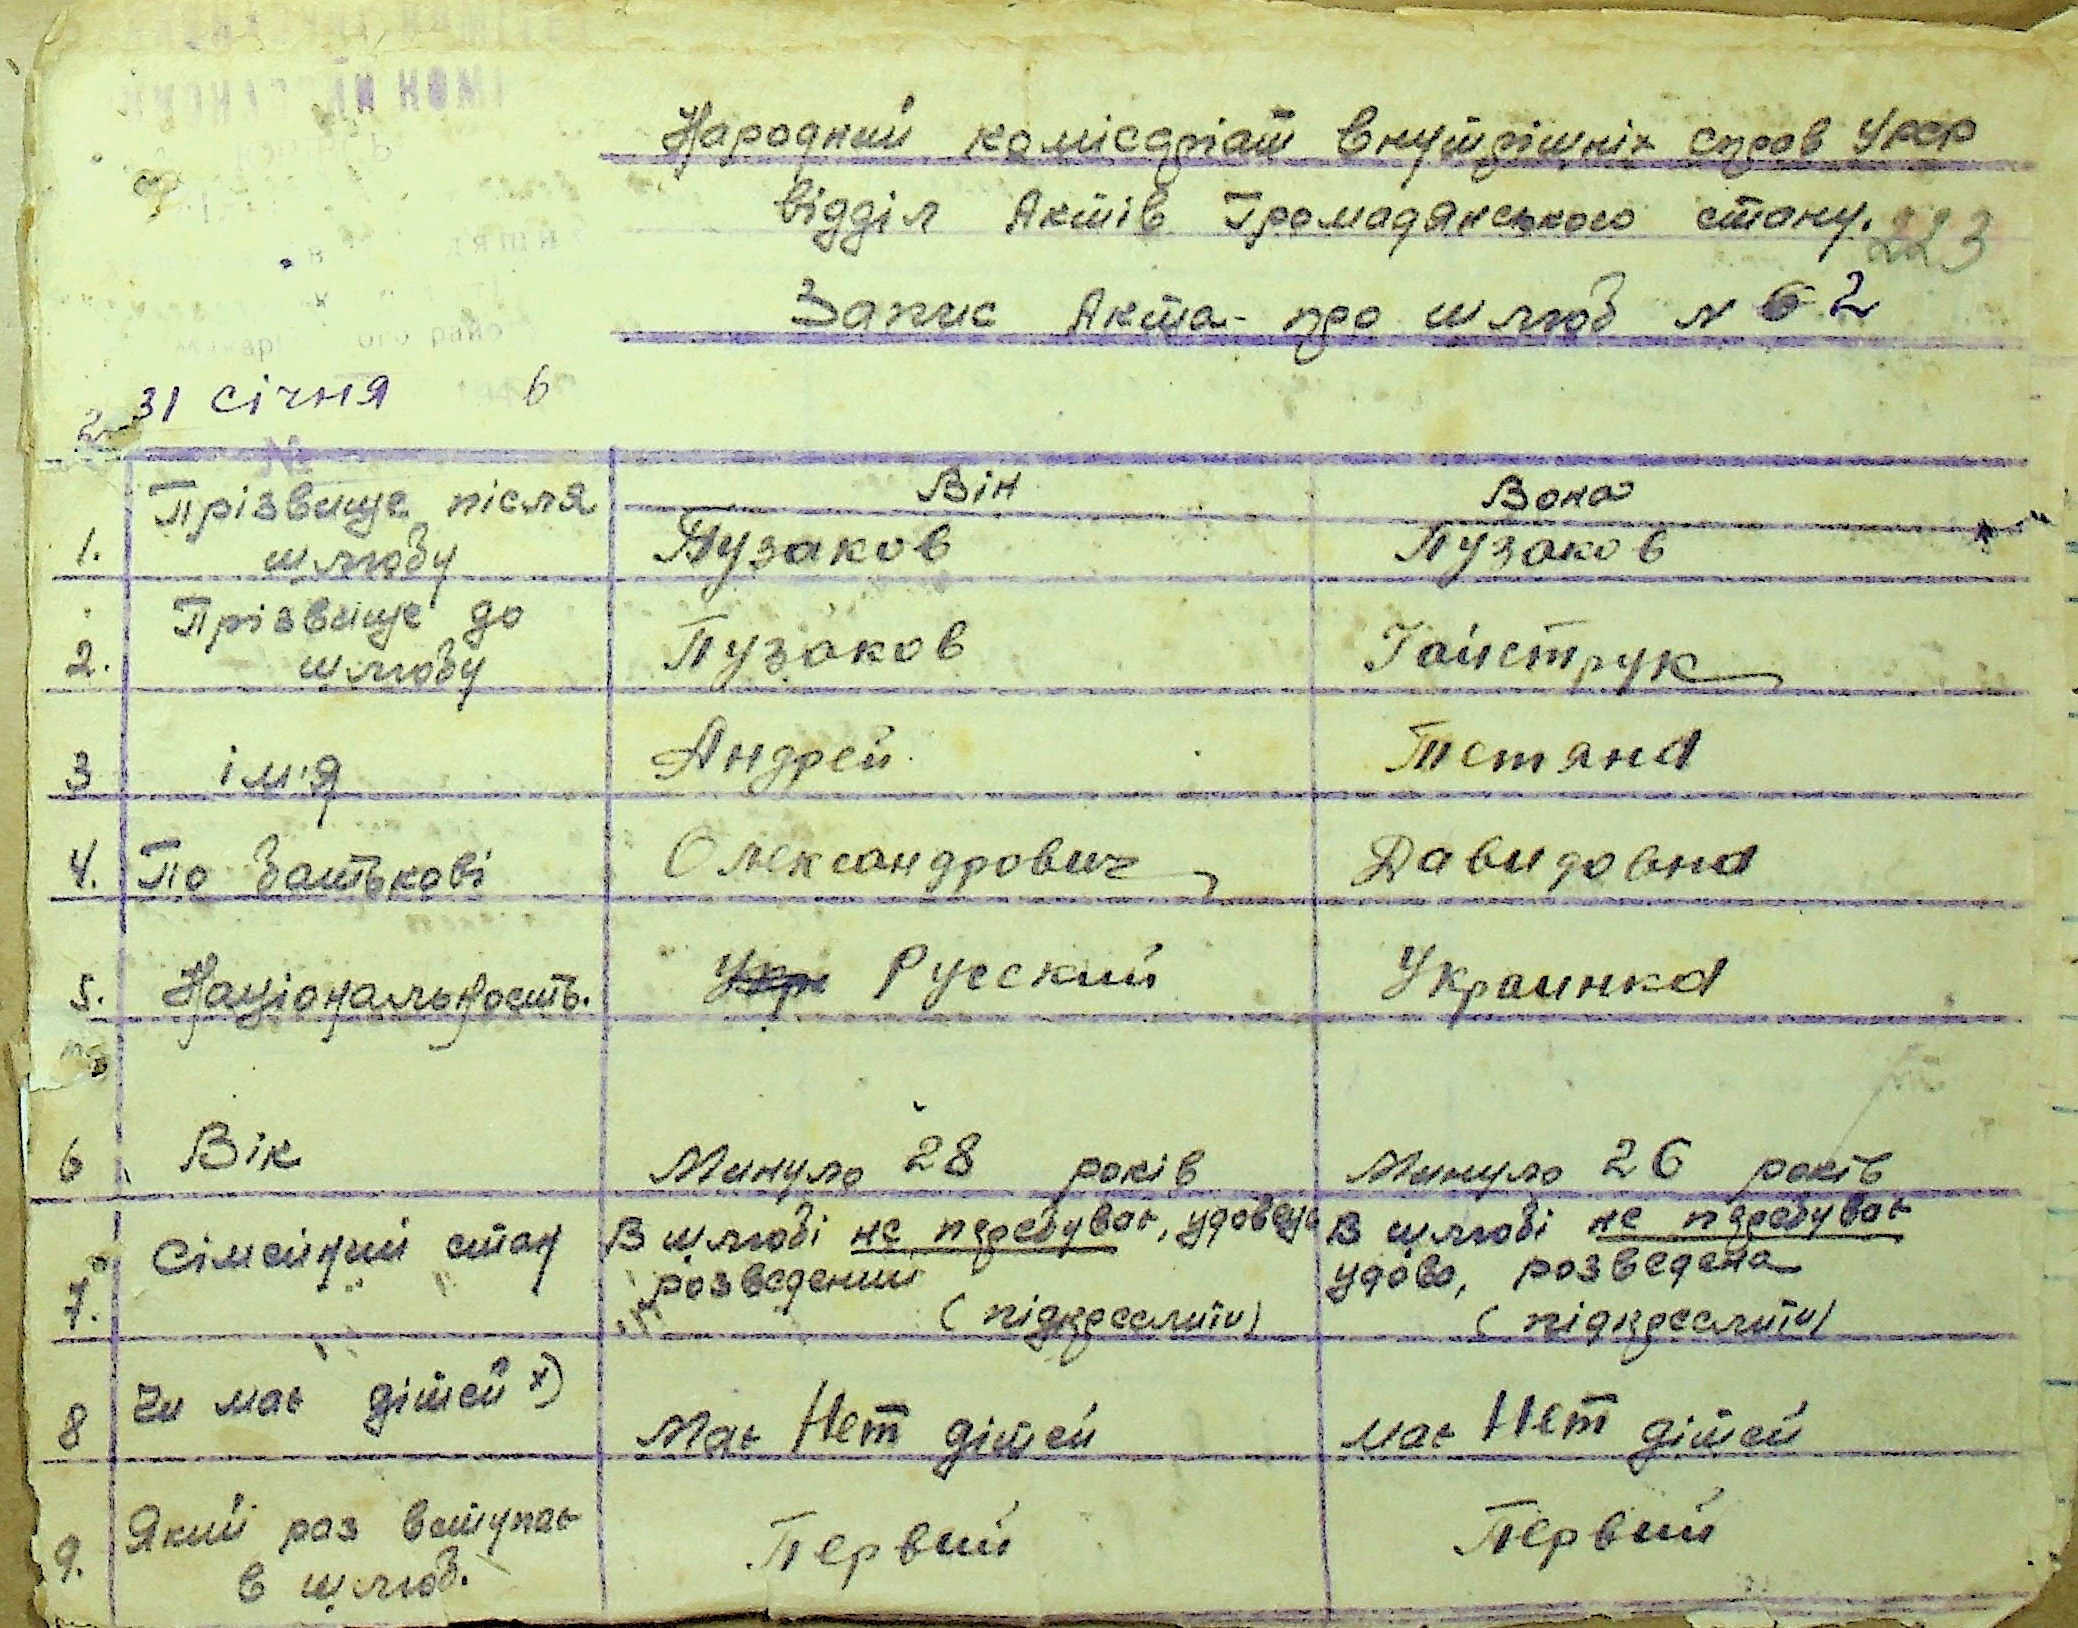 Народний комісаріат внутрішніх справ УРСР
відділ Актів Громадянського стану.
223
Запис Акта про шлюб № 62
31 січня
Він Вона
1. Прізвище після шлюбу Пузаков Пузаков
2. Прізвище до шлюбу Пузаков Гайструк
3 ім'я Андрей Тетяна
4. По батькові Олександрович Давидовна
5. Національность. Укр Русский Украинка
6 Вік Минуло 28 років Минуло 26 років
7. Сімейний стан В шлюбі не перебував, удовець В шлюбі не перебував
розведений удова, розведена
(підкреслити) (підкреслити)
8 Чи має дітей х) Має Нет дітей має Нет дітей
9. Який раз вступає Первий Первий
в шлюб.